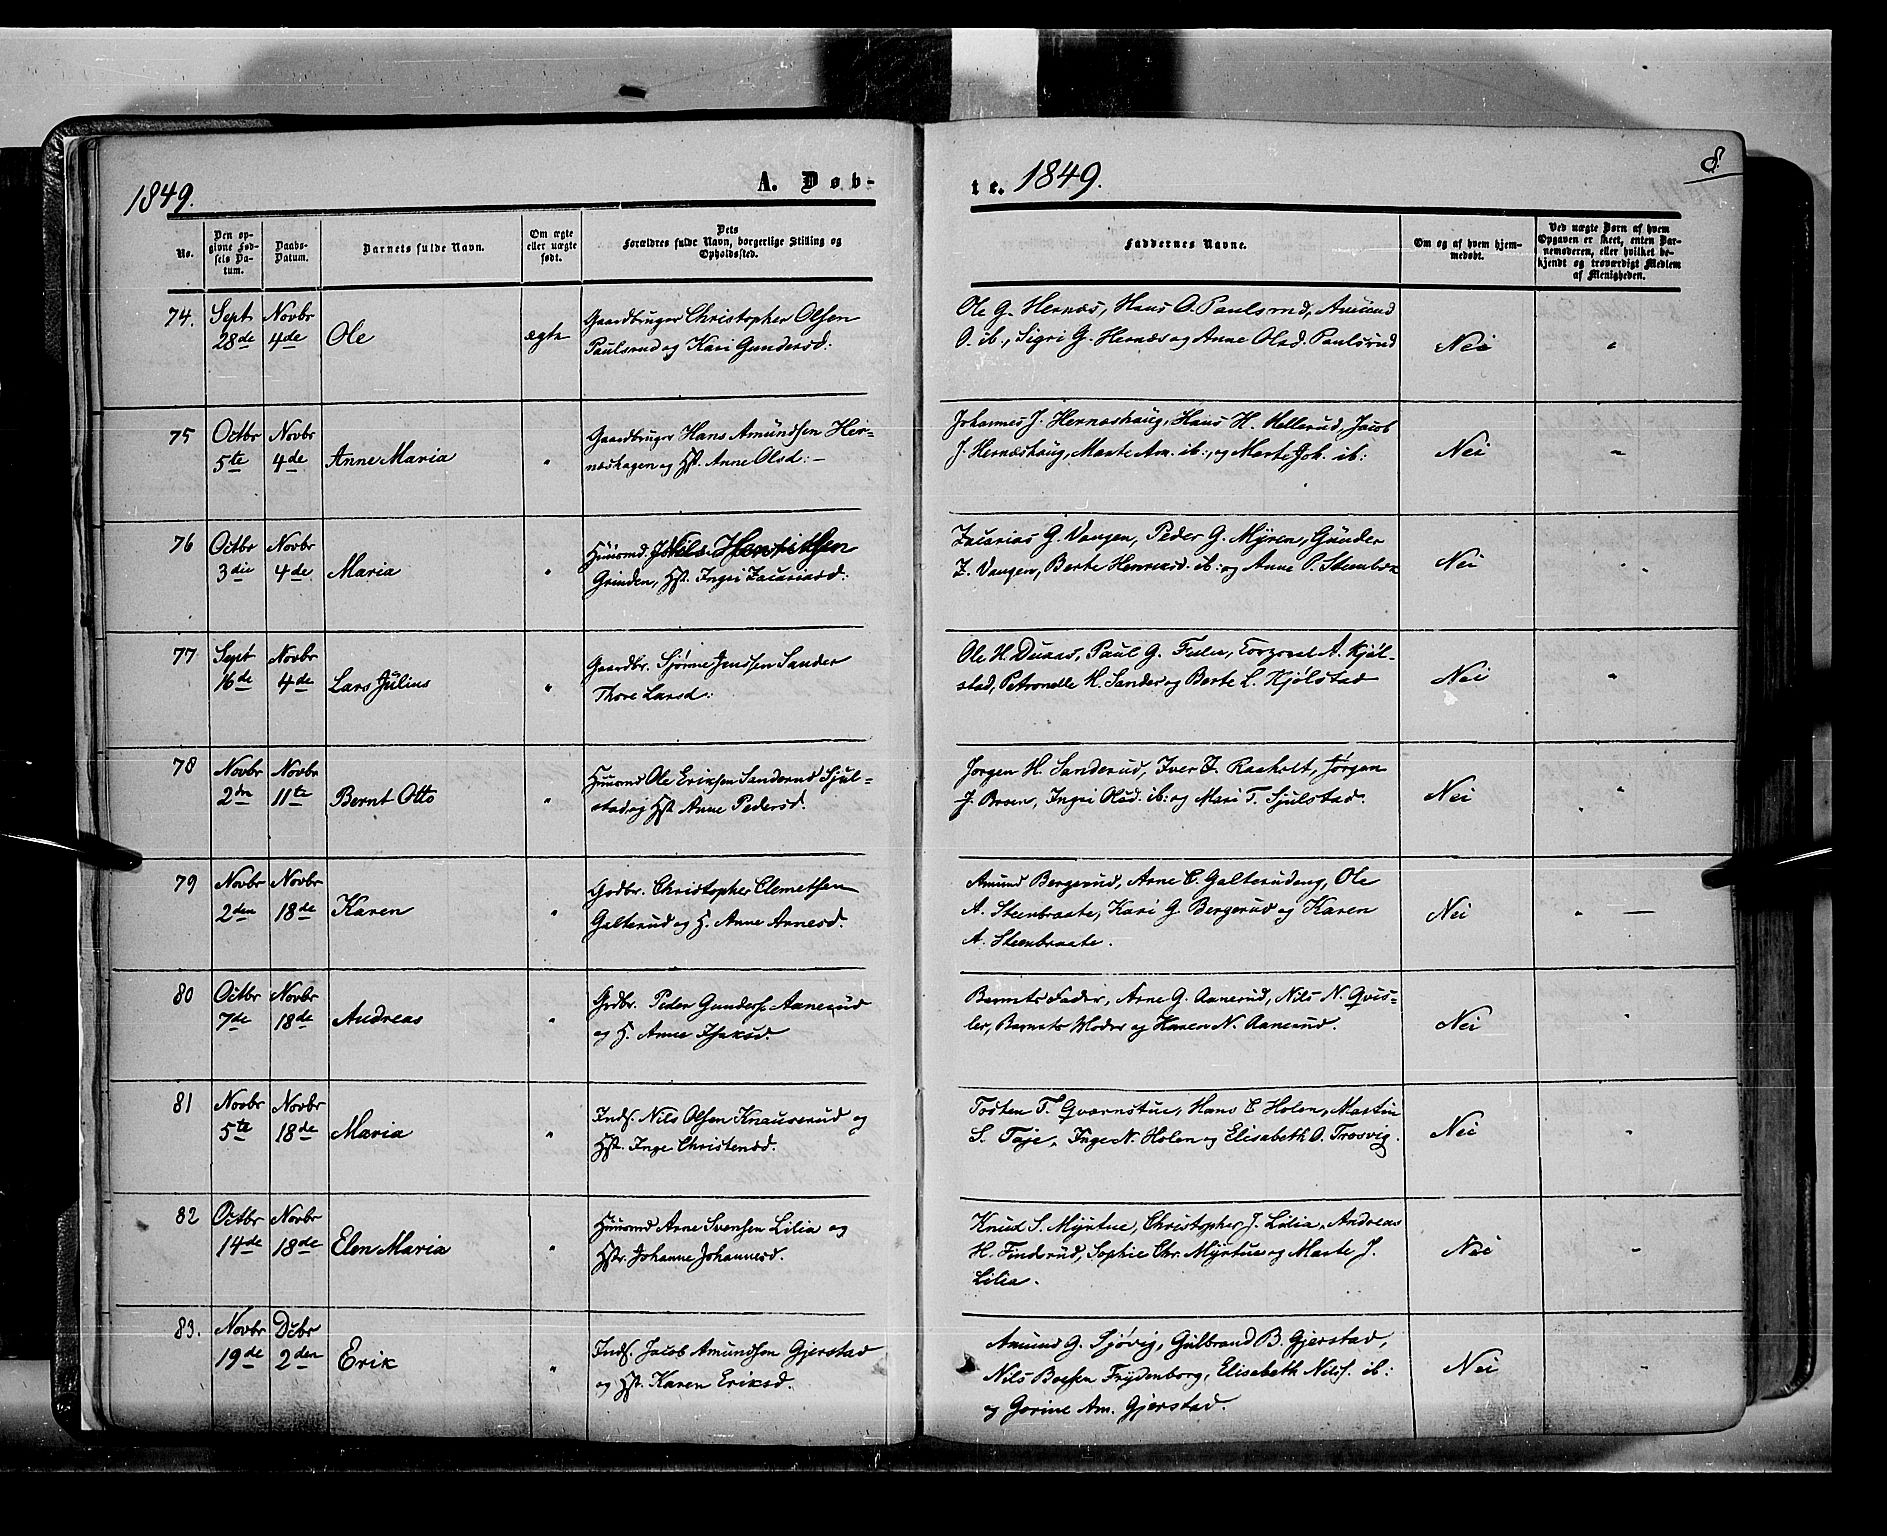 1849.
A. Døb-
te. 1849.
8.
No.
Den op-
givne Fød-
sels Da-
tum.
Daabs-
Datum.
Barnets fulde Navn.
Om ægte
eller uægte
født.
Dets
Forældres fulde Navn, borgerlige Stilling og
Opholdssted.
Faddernes Navne.
Om og af hvem hjem-
medøbt.
Ved uægte Børn af hvem
Opgaven er skeet, enten Bar-
nemoderen, eller hvilket be-
kjendt og troværdigt Medlem
af Menigheden.
74. Sept 28de Novbr 4de Ole ægte
Gaardbruger Christopher Olsen
Paulsrud og Kari Gundersd:
Ole G. Hernæs, Hans O. Paulsrud, Amund
O. ib., Sigri G. Hernæs og Anne Olsd. Paulsrud
Nei "
75 Octbr 5te Novbr 4de Anne Maria "
Gaardbruger Hans Amundsen Her-
næshagen og Hst. Anne Olsd:
Johannes J. Hernæshaug, Hans H. Hellerud, Jacob
J. Hernæshaug, Marte Am. ib:, og Marte Joh. ib:
Nei "
76 Octbr 3die Novbr 4de Maria "
Huusmd. Henriksen
Grinden, Hst. Ingri Zacariasd:
Zacarias G. Vangen, Peder G. Myren, Gunder
Z. Vangen, Berte Henriksd. ib: og Anne P.
Nei "
77 Sept 16de Novbr 4de Lars Julius "
Gaardbr. Sjønne Jenssen Sander
Thore Larsd:
Ole H. Paul G. A. Kjøl-
stad, Petronelle H. Sander og Berte L. Kjølstad
Nei "
78 Novbr 2den Novbr 11te Bernt Otto "
Huusmd Ole Eriksen Sanderud Sjul-
stad og Hst Anne Pedersd.
Jørgen H. Sanderud, Iver Raaholt, Jørgen
J. Bruun, Ingri Olsd. ib: og Mari T. Sjulstad.
Nei "
79 Novbr 2den Novbr 18de Karen "
Gdbr. Christopher Clemetsen
Galterud og H. Anne Arnesd.
Amund Bergerud, Arne C. Galterudeng, Ole
A. Steenbraate, Kari G. Bergerud og Karen
A. Steenbraate.
Nei " —
80 Octbr 7de Novbr 18de Andreas "
Gdbr. Peder Gunders. Aanerud
og H. Anne Isaksd.
Barnets Fader, Arne G. Aanerud, Nils N. Qvis-
ler, Barnets Moder og Karen N. Aanerud.
Nei "
81 Novbr 5te Novbr 18de Maria "
Inds. Nils Olsen Knauserud og
Hst. Inge Christensd.
Tosten T. Qværnstue, Hans C Holen, Martin
S. Taje, Inge N. Holen og Elisabeth O. Trosvig.
Nei "
82 Octbr 14de Novbr 18de Elen Maria "
Huusmd Arne Svensen Lilia og
Hstr. Johanne Johannesd.
Knud S. Myrtue, Christopher J. Lilia, Andreas
H. Finderud, Sophie Chr. Myrtue og Marte J.
Lilia.
Nei "
83. Novbr 19de Dcbr 2den Erik "
Inds. Jacob Amundsen Gjerstad
og Hst. Karen Eriksd.
Amund G. Sjøvig, Gulbrand B. Gjerstad,
Nils Boesen Frydenborg, Elisabeth Nilss. ib:
og Gorine Am. Gjerstad.
Nei "